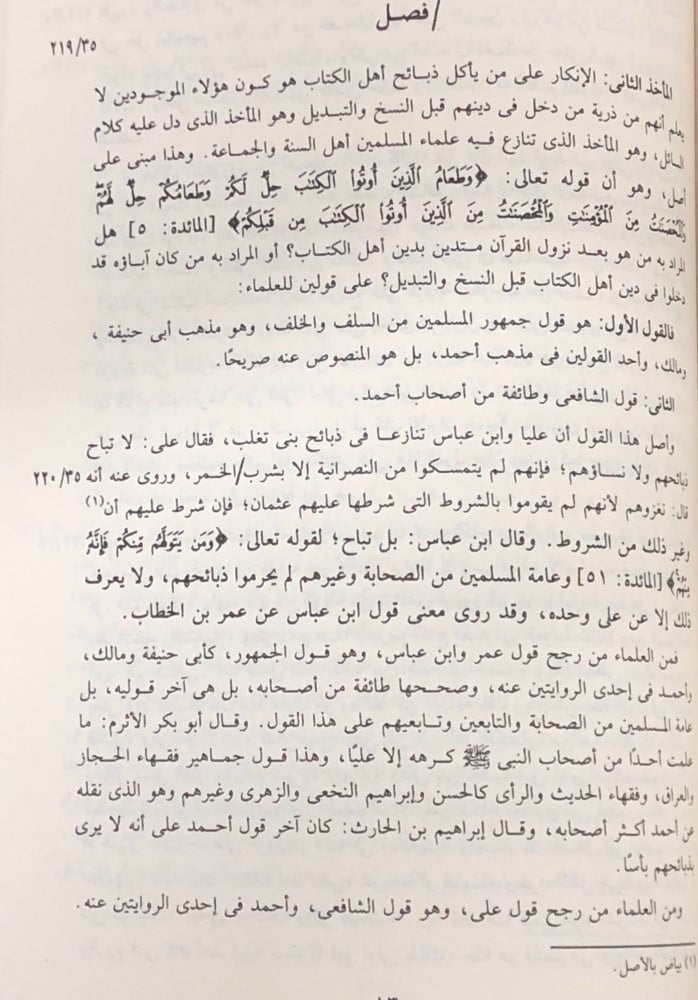 / فصل
٢١٩/٣٥
المأخذ الثانى: الإنكار على من يأكل ذبائح أهل الكتاب هو كون هؤلاء الموجودين لا
يعلم أنهم من ذرية من دخل فى دينهم قبل النسخ والتبديل وهو المأخذ الذى دل عليه كلام
السائل، وهو المأخذ الذى تنازع فيه علماء المسلمين أهل السنة والجماعة. وهذا مبنى على
أصل، وهو أن قوله تعالى: ﴿وَطَعَامُ الَّذِينَ أُوتُوا الْكِتَابَ حِلٌّ لَكُمْ وَطَعَامُكُمْ حِلٌّ لَهُمْ
وَالْمُحْصَنَاتُ مِنَ الْمُؤْمِنَاتِ وَالْمُحْصَنَاتُ مِنَ الَّذِينَ أُوتُوا الْكِتَابَ مِن قَبْلِكُمْ﴾ [المائدة: ٥] هل
المراد به من هو بعد نزول القرآن متدين بدين أهل الكتاب؟ أو المراد به من كان آباؤه قد
دخلوا فى دين أهل الكتاب قبل النسخ والتبديل؟ على قولين للعلماء:
فالقول الأول: هو قول جمهور المسلمين من السلف والخلف، وهو مذهب أبى حنيفة ،
ومالك، وأحد القولين فى مذهب أحمد، بل هو المنصوص عنه صريحًا.
الثانى: قول الشافعى وطائفة من أصحاب أحمد.
وأصل هذا القول أن عليا وابن عباس تنازعـا فى ذبائح بنى تغلب، فقال على: لا تباح
ذبائحهم ولا نساؤهم؛ فإنهم لم يتمسكوا من النصرانية إلا بشرب/الخمر، وروى عنه أنه ٢٢٠/٣٥
قال: نغزوهم لأنهم لم يقوموا بالشروط التى شرطها عليهم عثمان؛ فإن شرط عليهم أن(١)
وغير ذلك من الشروط. وقال ابن عباس: بل تباح؛ لقوله تعالى: ﴿وَمَن يَتَوَلَّهُم مِّنكُمْ فَإِنَّهُ
مِنْهُمْ﴾ [المائدة: ٥١] وعامة المسلمين من الصحابة وغيرهم لم يحرموا ذبائحهم، ولا يعرف
ذلك إلا عن على وحده، وقد روى معنى قول ابن عباس عن عمر بن الخطاب.
فمن العلماء من رجح قول عمر وابن عباس، وهو قول الجمهور، كأبى حنيفة ومالك،
وأحمد فى إحدى الروايتين عنه، وصححها طائفة من أصحابه، بل هى آخر قوليه، بل
عامة المسلمين من الصحابة والتابعين وتابعيهم على هذا القول. وقال أبو بكر الأثرم: ما
علمت أحدًا من أصحاب النبى ﷺ كرهه إلا عليًا، وهذا قول جماهير فقهاء الحجاز
والعراق، وفقهاء الحديث والرأى كالحسن وإبراهيم النخعى والزهرى وغيرهم وهو الذى نقله
عن أحمد أكثر أصحابه، وقال إبراهيم بن الحارث: كان آخر قول أحمد على أنه لا يرى
بذبائحهم بأسًا.
ومن العلماء من رجح قول على، وهو قول الشافعى، وأحمد فى إحدى الروايتين عنه.
(١) بياض بالأصل.